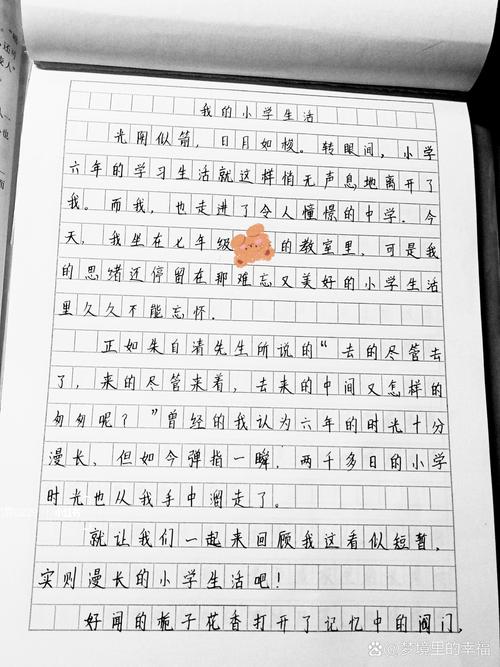 我的小学生活
光阴似箭，日月如梭。转眼间，小学
六年的学习生活就这样悄无声息地离开了
我。而我，也走进了令人憧憬的中学．今
天，我坐在七年级的教室里，可是我
的思绪还停留在那难忘又美好的小学生活
里久久不能忘怀．
正如朱自清先生所说的“去的尽管去
了，来的尽管来着，去来的中间又怎样的
匆匆呢？”曾经的我认为六年的时光十分
漫长，但如今弹指一瞬，两千多日的小学
时光也从我手中溜走了。
就让我们一起来回顾我这看似短暂，
实则漫长的小学生活吧！
好闻的栀子花香打开了记忆中的阀门，
@梦境里的幸福